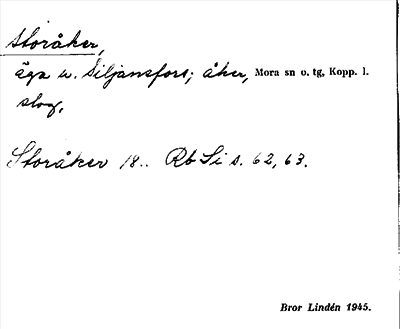 Storåker,
äga u. Siljansfors; åker, Mora sn o. tg, Kopp. l.
slog,
Storåker 18.. Rb Si s. 62, 63.
Bror Lindén 1945.